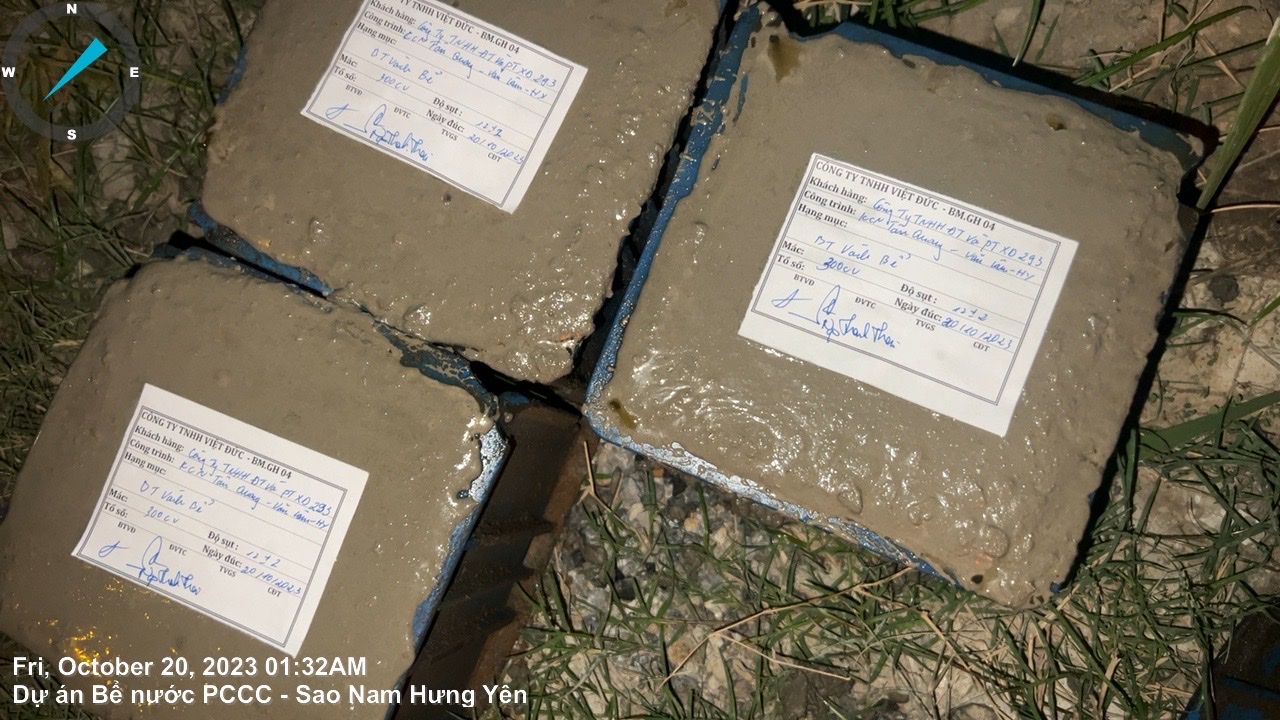 N
W
E
S
CÔNG TY TNHH VIỆT ĐỨC - BM.GH 04
Khách hàng: Công Ty TNHH ĐT Và PT XD 293
Công trình: KCN Tân Quang - Văn Lâm - HY
Hạng mục: BT Vách Bể
Mác: 300cv
Độ sụt : 12±2
Tổ số:
Ngày đúc: 20/10/2023
BTVĐ
ĐVTC
TVGS
CĐT
CÔNG TY TNHH VIỆT ĐỨC - BM.GH 04
Khách hàng: Công Ty TNHH ĐT Và PT XD 293
Công trình: KCN Tân Quang - Văn Lâm - HY
Hạng mục: BT Vách Bể
Mác: 300cv
Độ sụt : 12±2
Tổ số:
Ngày đúc: 20/10/2023
BTVĐ
ĐVTC
TVGS
CĐT
CÔNG TY TNHH VIỆT ĐỨC - BM.GH 04
Khách hàng: Công Ty TNHH ĐT Và PT XD 293
Công trình: KCN Tân Quang - Văn Lâm - HY
Hạng mục: BT Vách Bể
Mác: 300cv
Độ sụt : 12±2
Tổ số:
Ngày đúc: 20/10/2023
BTVĐ
ĐVTC
TVGS
CĐT
Fri, October 20, 2023 01:32AM
Dự án Bể nước PCCC - Sao Nam Hưng Yên